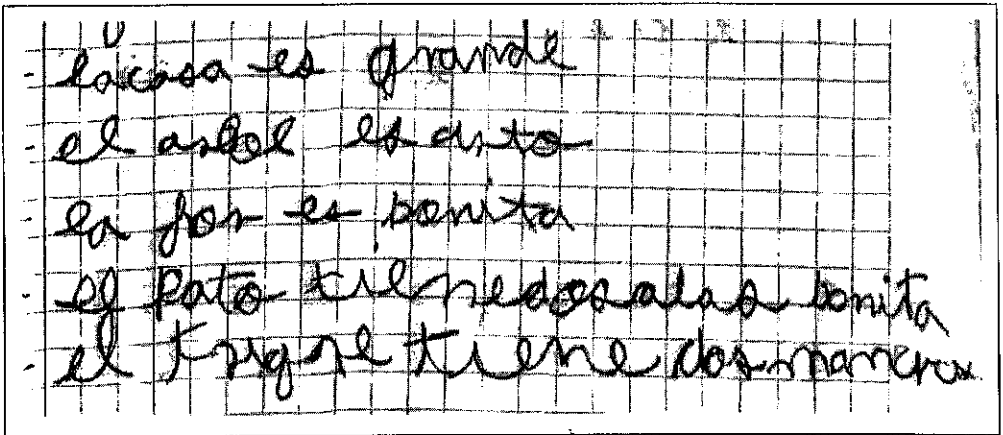 - lacasa es grande
- el arbol es arto
- la for es bonita
- el pato tienedosalas bonita
- el trigre tiene dos maneras